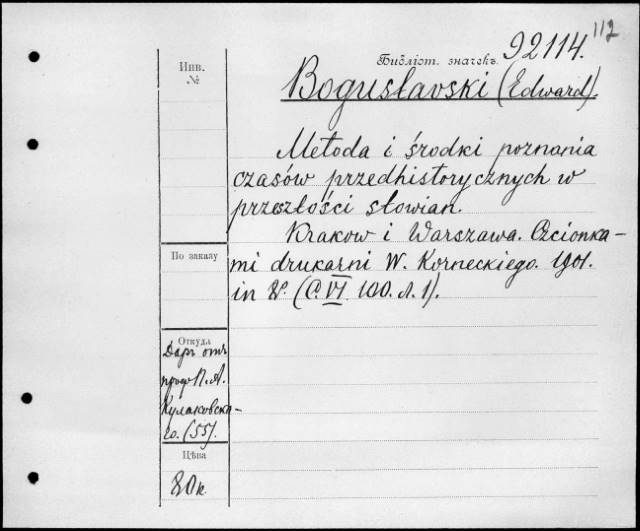 112
Инв.
№
Библіот. значекъ 92114.
Bogusławski (Edward).
Metoda i środki poznania
czasów przedhistorycznych w
przeszłości słowian.
Krakow i Warszawa. Czcionka-
mi drukarni W. Korneckiego. 1901.
in 8°. (C. VI 100. л. 1).
По заказу
Откуда
Даръ отъ
проф П. А.
Кулаковска-
го. (55).
Цѣва
80 к